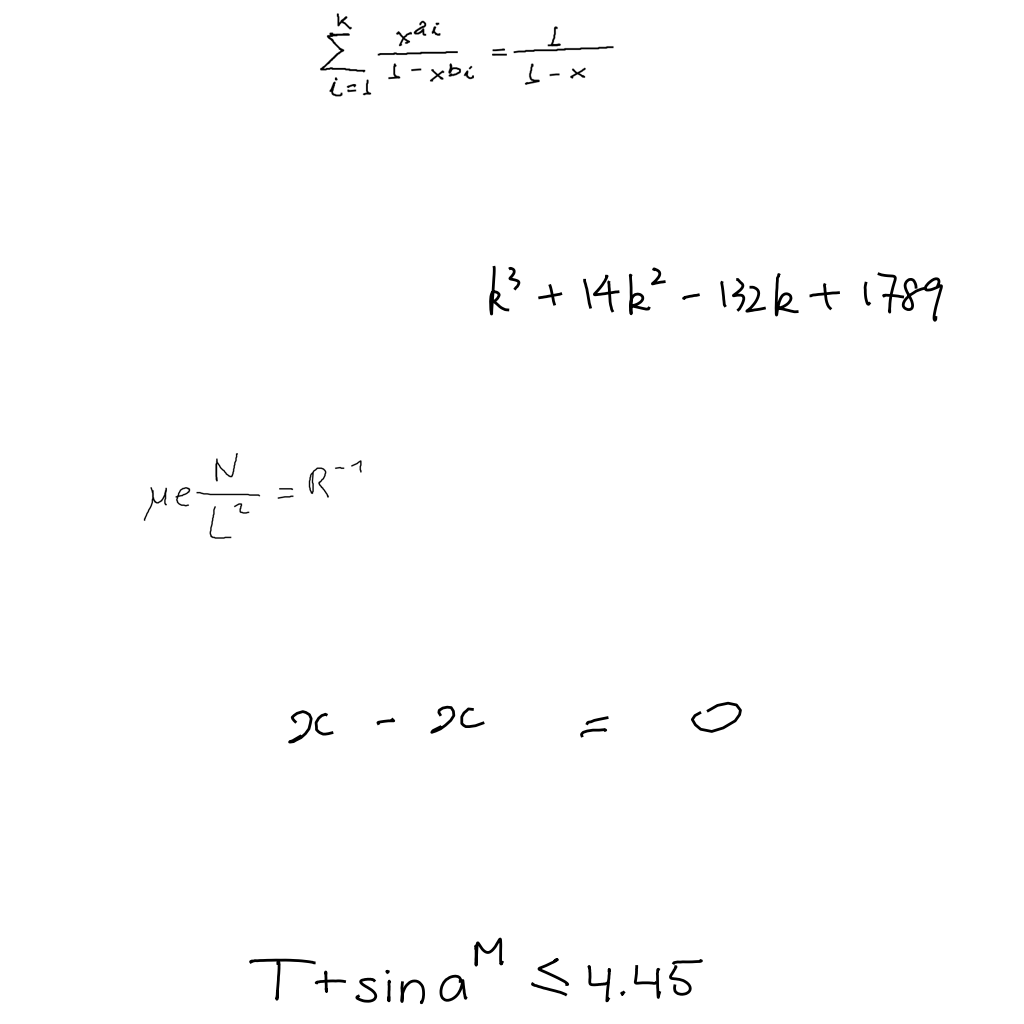 \sum_{i=1}^{k} \frac{x^{a_i}}{1-x^{b_i}} = \frac{1}{1-x}
k^3 + 14k^2 - 132k + 1789
\mu e \frac{N}{L^2} = R^{-1}
x - x = 0
T + \sin a^M \leq 4.45